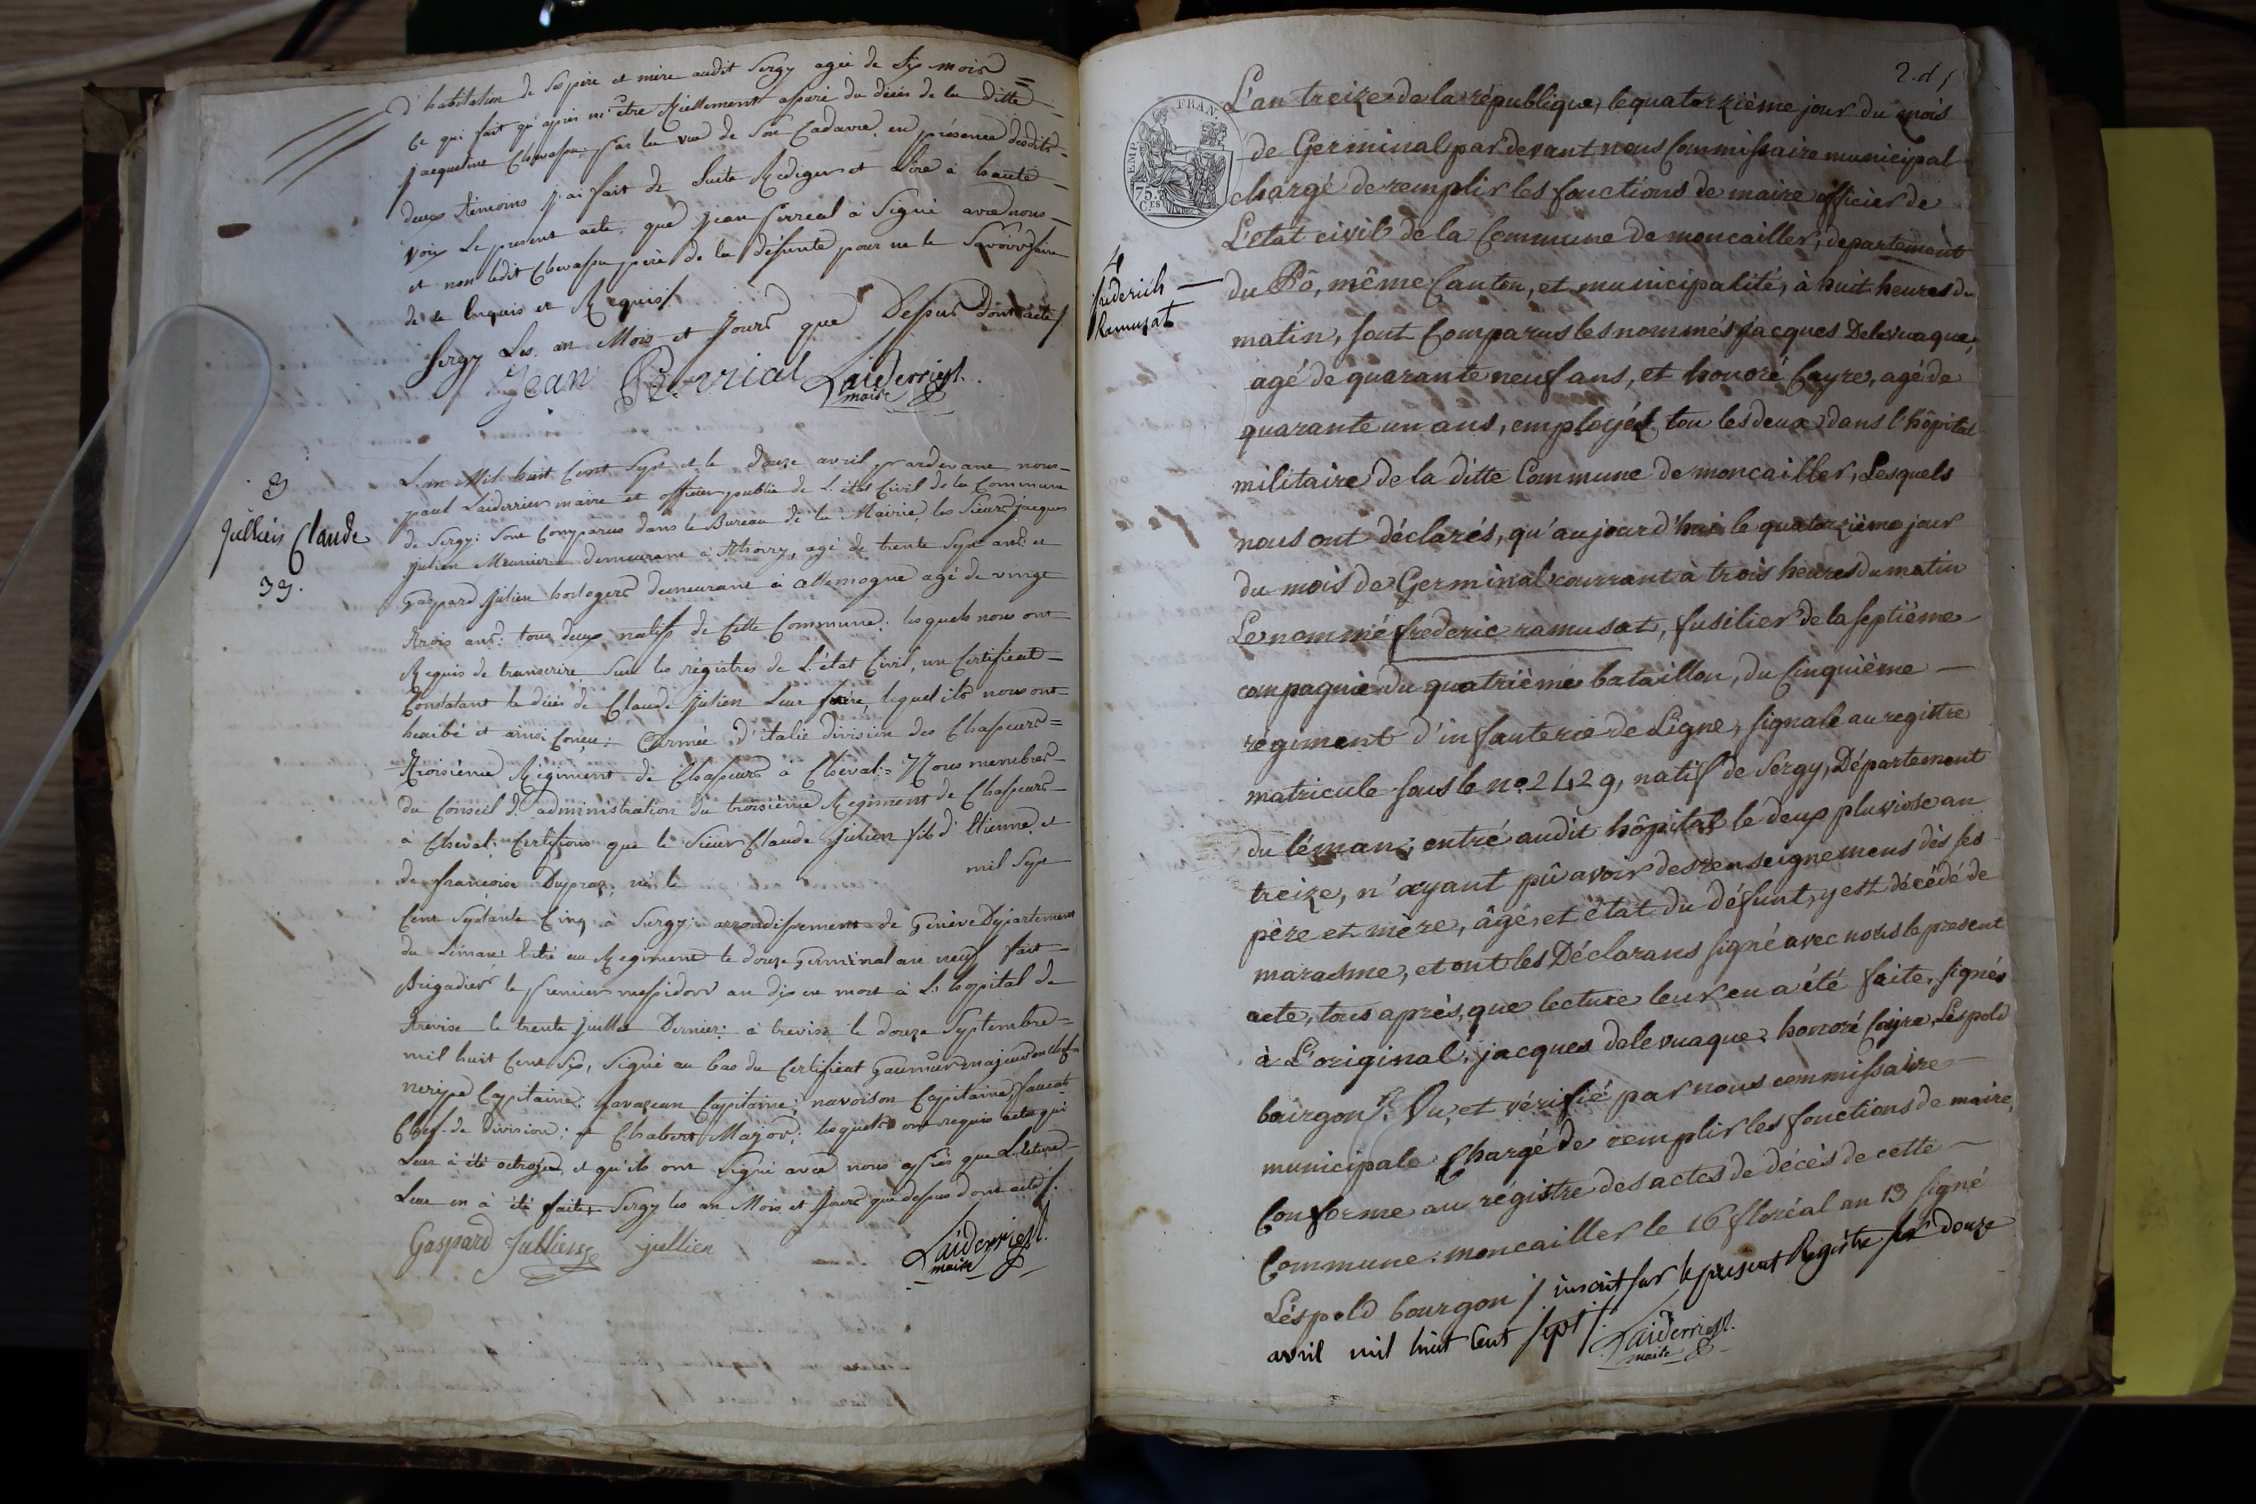 d'habitation de ses père et mère audit Sergy agée de six mois =
Ce qui fait qu'après m'être réellement assuré du décès de la ditte
jacqueline Chevassu, par la vue de son Cadavre, en présence desdits =
deux Témoins j'ai fait de Suite Rediger et Lire à haute
voix Le present acte, que jean perreal à Signé avec nous
et non ledit Chevassu père de la défunte pour ne le Savoir faire
de ce Enquis et Requis /.
Sergy Les an Mois et Jours que Dessus dont acte /
Jean Perrial Laiderrier
maire
3
Jullien Claude
39.
L'an Mil huit Cent Sept et le douze avril pardevant nous
paul Laiderrier maire et officier publie de L'état Civil de la Commune
de Sergy: Sont Comparus dans le Bureau de la Mairie, les Sieurs jacques
julien Meunier demeurant à Thoiry, agé de trente Sept ans: et
Gaspard Julien horlogers demeurant à allemogne agé de vingt
trois ans: tous deux natifs de Cette Commune: lesquels nous ont
Requis de transcrire Sur les régistres de L'état Civil, un Certificat
Constatant le décès de Claude Julien Leur frère, lequel ils nous ont
hexibé et ainsi Conçu: armée d'italie division des Chasseurs =
Troisième Régiment de Chasseurs à Cheval = Nous membres
du Conseil d'administration du troisième Regiment de Chasseurs
à Cheval: Certifions que le Sieur Claude Julien fils d'Etienne, et
de francoise Dupraz, né le mil Sept
Cent Septante Cinq à Sergy: arrondissement de Genève Département
du Léman Entré au Regiment le douze germinal an neuf fait
Brigadier le premier messidor an dix est mort à L'hopital de
Trevise le trente juillet Dernier: à trevise le douze Septembre =
mil huit Cent Six, Signé au bas du Certificat Gaumur major en chef
Capitaine: Capitaine: navoison Capitaine,
Chef de Division: et Chabert Major: lesquels ont requis acte qui
Leur à été octroyé, et qu'ils ont Signé avec nous après que Lecture
Leur en à été faite, Sergy les an Mois et Jours que dessus dont acte /.
Gaspard Jullien jullien Laiderrier
maire
2. d /
EMP. FRAN.
75.
CES
4
frederich
Remusat
L'an treize de la république, le quatorzième jour du mois
de Germinal par devant nous Commissaire municipal
chargé de remplir les fonctions de maire officier de
L'etat civil de la Commune de moncailler, departement
du Pô, même Canton, et municipalité, à huit heures du
matin, sont Comparus les nommés jacques Delevuaque,
agé de quarante neuf ans, et honoré Cayre, agé de
quarante un ans, employés tou les deux dans l'hôpital
militaire de la ditte Commune de moncailler, Lesquels
nous ont déclarés, qu'aujourd'hui le quatorzième jour
du mois de Germinal courrant à trois heures du matin
Le nommé frederic ramusat, fusilier de la septième
compagnie du quatrième bataillon, du Cinquième
régiment d'infanterie de Ligne, signalé au regittre
matricule sous le no. 2429, natif de Sergy, Département
du léman; entré audit hôpital le deux pluviose an
treize, n'ayant pû avoir des renseignemens dès ses
père et mère, âgé, et état du défunt, y est décédé de
marasme, et ont les Déclarans signé avec nous le present
acte, tous après, que lecture leur en a été faite, signés
à L'original, jacques delevuaque, honoré Cayre, Léspold
bourgon /. Vu, et vérifié par nous commissaire
municipale Chargé de remplir les fonctions de maire,
Conforme au régistre des actes de décès de cette
Commune: moncailler le 16 floréal an 13 signé
Léspold bourgon / inscrit sur le present Registre ler douze
avril mil huit Cent sept /. Laiderrier
maire